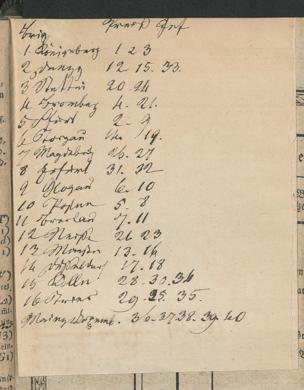 Brig. Preuß. Inf.
1 Königsberg 1 2 3
2 Danzig 12. 15. 33.
3 Stettin 20 24
4 Bromberg 4. 21.
5 2 - 9
6 Torgau 19.
7 Magdeburg 26. 27
8 Erfurt 31. 32
9 Glogau 6. 10
10 Posen 5. 8
11 Breslau 7. 11
12 Neiße 22 23
13 Münster 13. 16
14 Düsseldorf 17. 18
15 Cölln 28. 30. 34
16 Trier 29. 25. 35.
Mainz 36. 37. 38. 39. 40